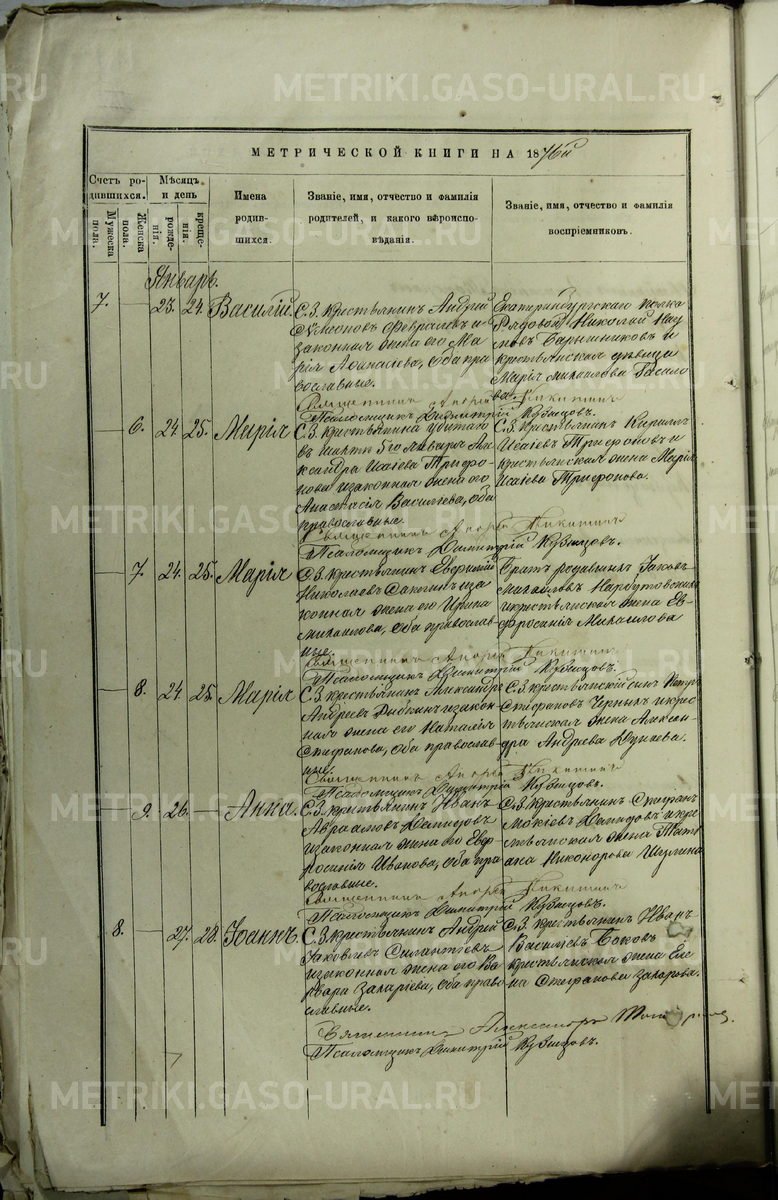 МЕТРИЧЕСКОЙ КНИГИ НА 1876й
Счетъ родившихся.
Мужеска пола.
Женска пола.
Мѣсяцъ и день
рожденія.
крещенія.
Имена родившихся.
Званіе, имя, отчество и фамилія родителей, и какого вѣроисповѣданія.
Званіе, имя, отчество и фамилія воспріемниковъ.
Январь.
7. — 23. 24. Василій.
С. З. крестьянинъ Андрей
Февралевъ и
законная жена его Ма
рія Аѳанасіева, оба пра
вославные.
Екатеринбургскаго полка
Рядовой Николай Нау
мовъ Барышниковъ и
крестьянская дѣвица
Марія Михаилова
Священникъ Никитинъ
Псаломщикъ Димитрій Кузнецовъ.
— 6. 24. 25. Марія
С. З. крестьянина убитаго
въ шахтѣ 5го Января Але
ксандра Исаіева Трифо
нова и законная жена его
Анастасія Васильева, оба
православные.
С. З. крестьянинъ Кириллъ
Исаіевъ Трифоновъ и
крестьянская жена Марія
Исаіева Трифонова.
Священникъ Никитинъ
Псаломщикъ Димитрій Кузнецовъ.
— 7. 24. 25. Марія
С. З. крестьянинъ Евфимій
Николаевъ и за
конная жена его Ирина
Михаилова, оба православ
ные.
Яковъ
Михаиловъ
и крестьянская жена Ев
фросинія Михаилова
Священникъ Никитинъ
Псаломщикъ Димитрій Кузнецовъ.
— 8. 24. 25. Марія
С. З. крестьянинъ Александръ
Андреевъ и закон
ная жена его Наталія
Стефанова, оба православ
ные.
С. З. крестьянскій сынъ Петръ
Стефановъ Черныхъ и крес
тьянская жена Алексан
дра Андреева
Священникъ Никитинъ
Псаломщикъ Димитрій Кузнецовъ.
— 9. 26. — Анна.
С. З. крестьянинъ Иванъ
Авраамовъ Демидовъ
и законная жена его Евф
росинія Иванова, оба пра
вославные.
С. З. крестьянинъ Стефанъ
Мокіевъ Демидовъ и кре
стьянская жена Тать
ана Никонорова Шулина
Священникъ Никитинъ
Псаломщикъ Димитрій Кузнецовъ.
8. — 27. 28. Іоаннъ.
С. З. крестьянинъ Андрей
Яковлевъ Силантіевъ
и законная жена его Ва
рвара Захаріева, оба право
славные.
С. З. крестьянинъ Иванъ
Василіевъ Боковъ
крестьянская жена Еле
на Стефанова Захарова.
Священникъ Александръ
Псаломщикъ Димитрій Кузнецовъ.
METRIKI.GASO-URAL.RU